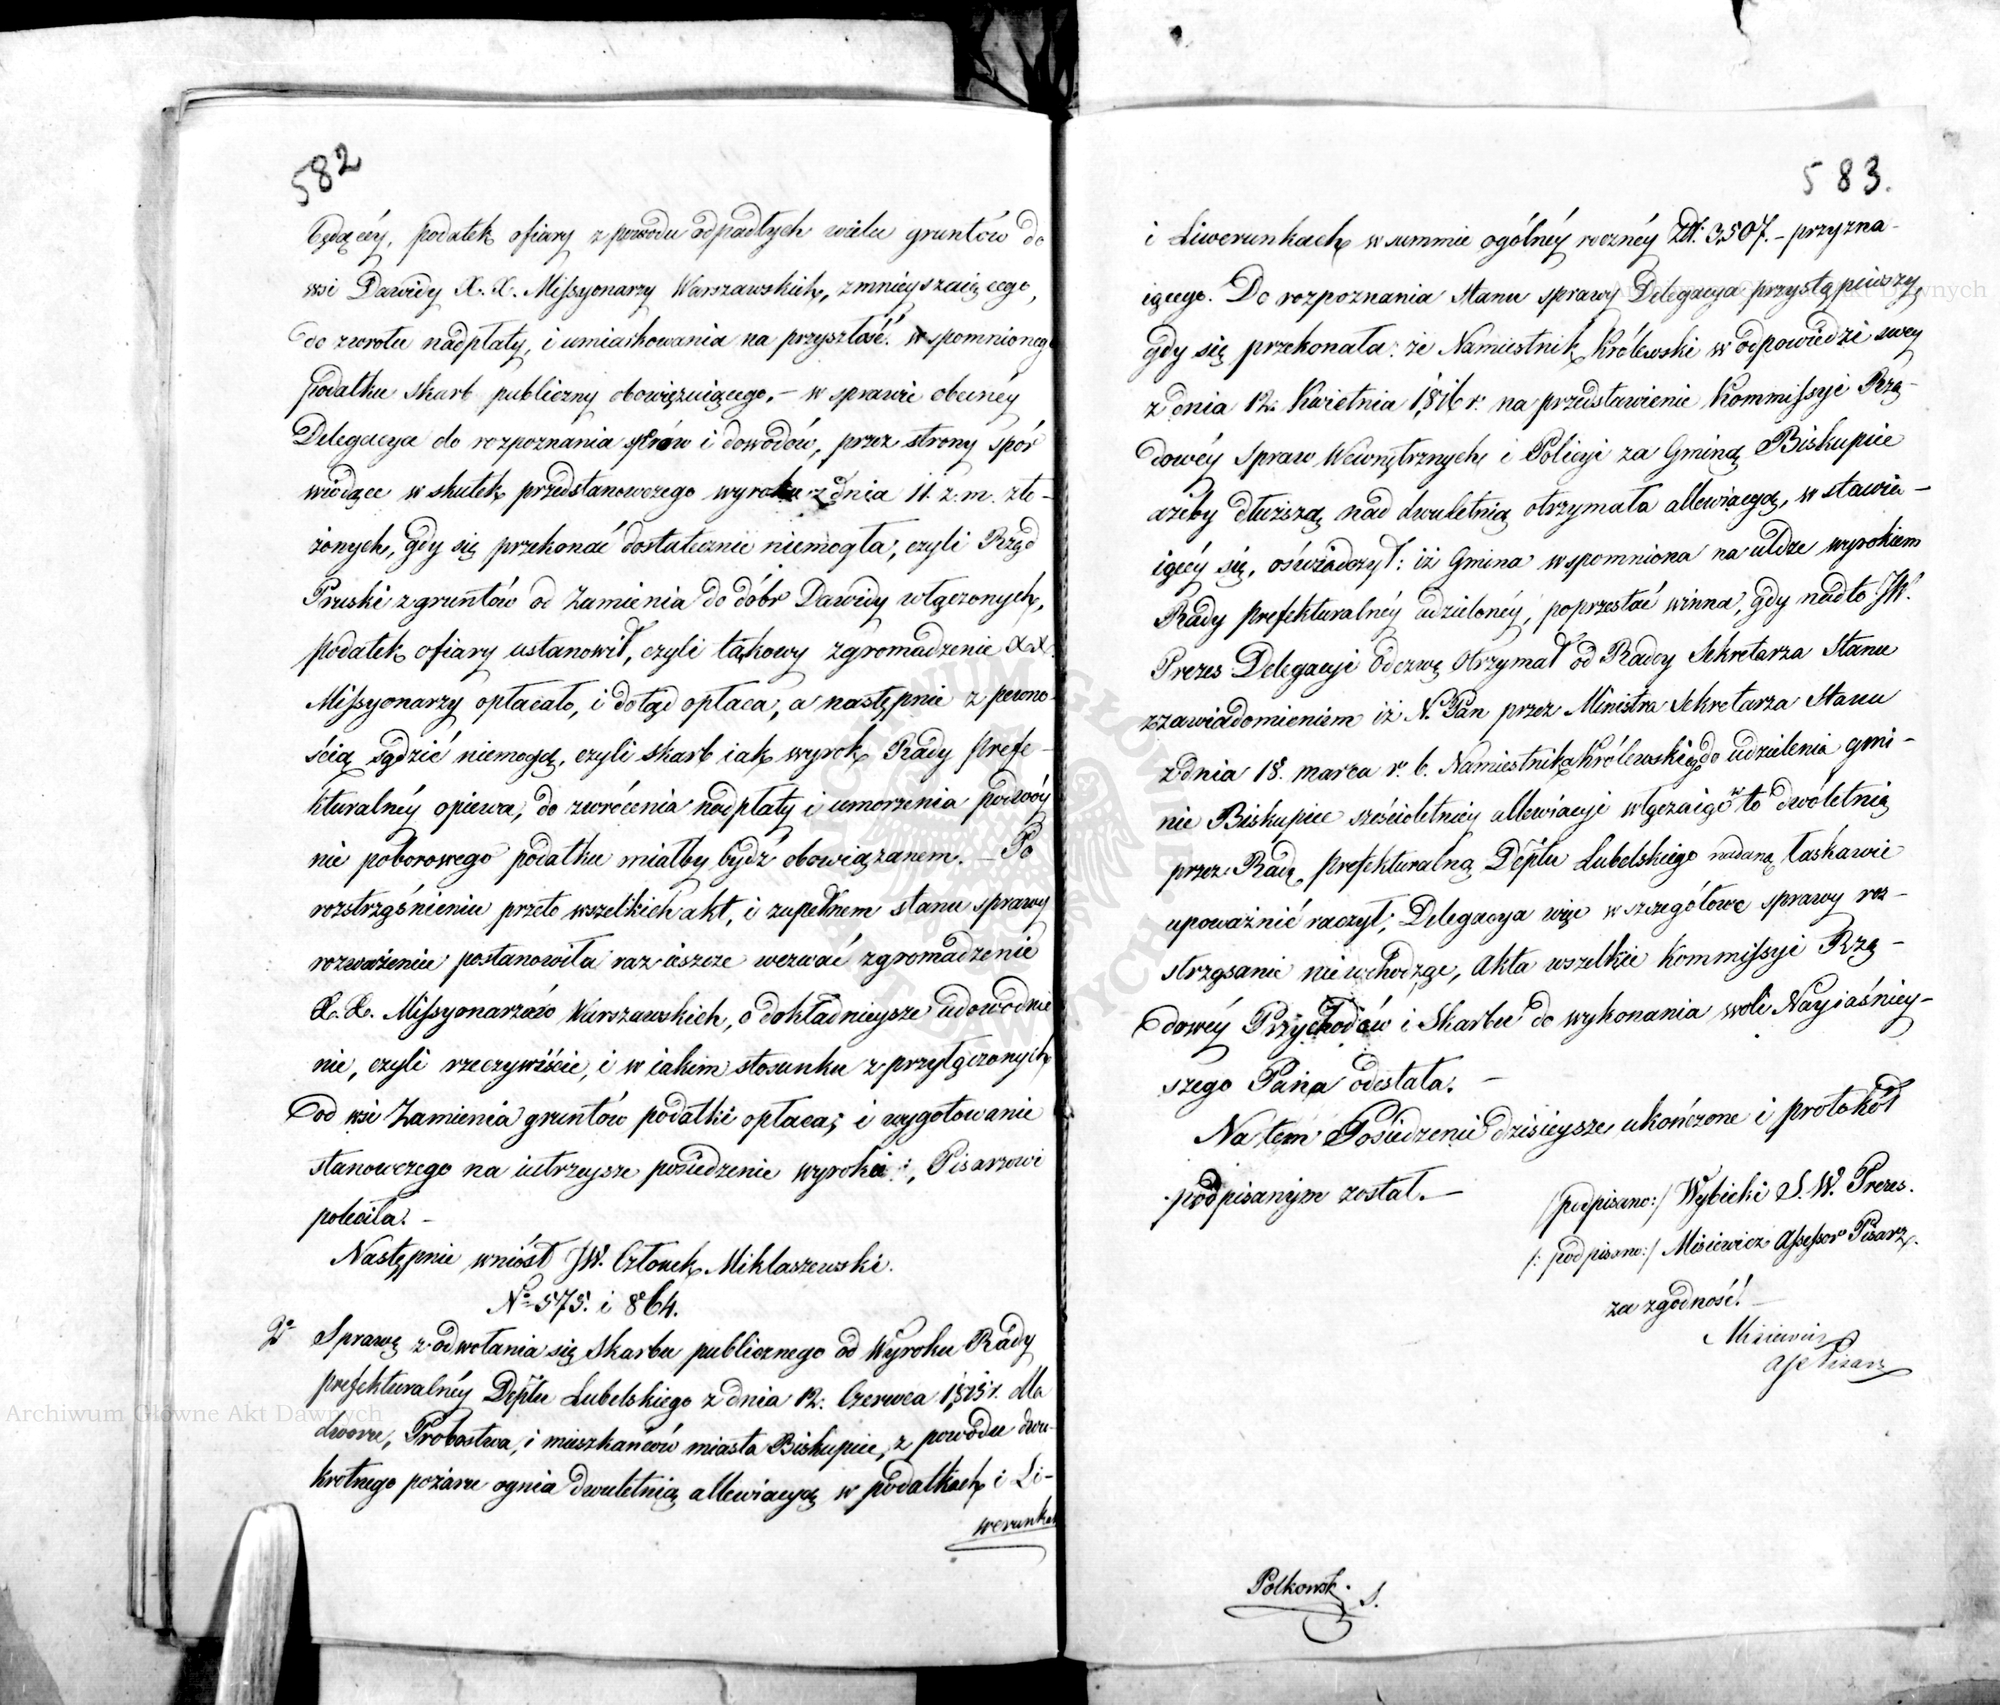 582
będącéy, podatek ofiary z powodu odpadłych wielu gruntów do
wsi Dawidy X. X. Missyonarzy Warszawskich, zmnieyszaiącego,
do zwrotu nadpłaty, i umiarkowania na przyszłość wspomnionego
podatku skarb publiczny obowięzuiącego, – w sprawie obecnéy
Delegacya do rozpoznania sporów i dowodów, przez strony spór
wiodące w skutek przedstanowczego wyroku z dnia 11. z. m. zło-
żonych, gdy się przekonać dostatecznie niemogła, czyli Rząd
Pruski z gruntów od Zamienia do dóbr Dawidy włączonych,
podatek ofiary ustanowił, czyli takowy zgromadzenie XX.
Missyonarzy opłacało, i dotąd opłaca, a następnie z pewno-
ścią sądzić niemogą, czyli skarb iak wyrok Rady Prefe-
kturalnéy opiewa, do zwrócenia nadpłaty i umorzenia podwóy
nie poborowego podatku miałby bydź obowiązanem. – Po
rozstrząśnieniu przeto wszelkich akt, i zupełnem stanu sprawy
rozważeniu postanowiła raz ieszcze wezwać zgromadzenie
X. X. Missyonarzów Warszawskich, o dokładnieysze udowodnie
nie, czyli rzeczywiście, i w iakim stosunku z przyłączonych
od wsi Zamienia gruntów podatki opłaca; i wygotowanie
stanowczego na iutrzeysze posiedzenie wyroku, Pisarzowi
poleciła. –
Następnie wniósł JW. Członek Miklaszewski.
No 575. i 864.
2o Sprawę z odwołania się Skarbu publicznego od Wyroku Rady
prefekturalnéy Deptu Lubelskiego z dnia 12. Czerwca 1815 r. dla
dworu, Probostwa, i mieszkańców miasta Biskupice, z powodu dwu-
krotnego pożaru ognia dwuletnią allewiacyą w podatkach i Li-
werunkach
583.
i Liwerunkach w summie ogólnéy rocznéy Złt. 3,507. – przyzna-
iącego. Do rozpoznania stanu sprawy Delegacya przystąpiwszy,
gdy się przekonała: że Namiestnik Królewski w odpowiedzi swey
z dnia 12. Kwietnia 1816 r. na przedstawienie Kommissyi Rzą-
dowéy Spraw Wewnętrznych i Policyi za Gminą Biskupice
ażeby dłuższą nad dwuletnią otrzymała allewiacyą, wstawia-
iącéy się, oświadczył: iż Gmina wspomniona na uldze wyrokiem
Rady prefekturalnéy udzielonéy, poprzestać winna, gdy nadto JW.
Prezes Delegacyi Odezwę Otrzymał od Radcy Sekretarza Stanu
z zawiadomieniem iż N. Pan przez Ministra Sekretarza Stanu
z dnia 18. marca r. b. Namiestnika Królewskiego do udzielenia gmi-
nie Biskupice sześcioletniey allewiacyi włączaiąc w to dwóletnią
przez Radę prefekturalną Deptu Lubelskiego nadaną, łaskawie
upoważnić raczył; Delegacya więc w szczegółowe sprawy roz-
strząsanie niewchodząc, Akta wszelkie Kommissyi Rzą-
dowéy Przychodów i Skarbu do wykonania woli Nayiaśniey-
szego Pana odesłała. –
Na tém Posiedzenie dzisieysze ukończone i protokół
podpisanym został. –
/:podpisano:/ Wybicki S. W. Prezes.
/:podpisano:/ Misiewicz Assessor Pisarz.
za zgodność. –
Misiewicz
As. Pisarz
Polkowsk. S.